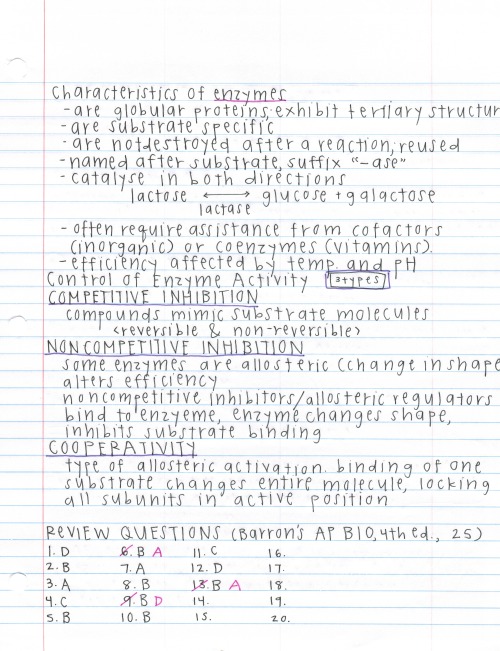 Characteristics of enzymes
- are globular proteins; exhibit tertiary structur
- are substrate specific
- are not destroyed after a reaction, reused
- named after substrate, suffix "-ase"
- catalyse in both directions
lactose ⟷ glucose + galactose
lactase
- often require assistance from cofactors
(inorganic) or coenzymes (vitamins).
- efficiency affected by temp. and pH
Control of Enzyme Activity 3 types
COMPETITIVE INHIBITION
compounds mimic substrate molecules
<reversible & non-reversible>
NONCOMPETITIVE INHIBITION
some enzymes are allosteric (change in shape
alters efficiency
noncompetitive inhibitors/allosteric regulators
bind to enzyeme, enzyme changes shape,
inhibits substrate binding
COOPERATIVITY
type of allosteric activation. binding of one
substrate changes entire molecule, locking
all subunits in active position
REVIEW QUESTIONS (Barron's AP BIO, 4th ed., 25)
1. D 6. B A 11. C 16.
2. B 7. A 12. D 17.
3. A 8. B 13. B A 18.
4. C 9. B D 14. 19.
5. B 10. B 15. 20.